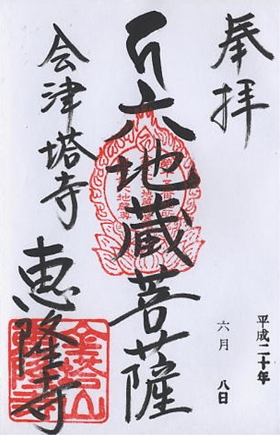 奉拝
平成二十年
六月 八日
六地蔵菩薩
会津塔寺
恵隆寺